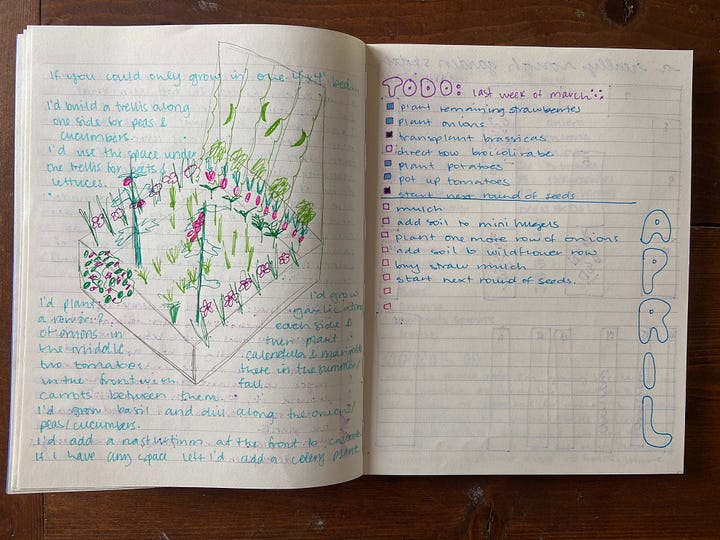 If you could only grow in one 4x4' bed...
I'd build a trellis along
one side for peas &
cucumbers.
I'd use the space under
the trellis for beets &
lettuces.
I'd plant
a row
of onions in
the middle
two tomatoes
in the front with
carrots between them.
I'd grow basil and dill along the onions/
peas/cucumbers.
I'd add a nasturtium at the front to
If I have any space left I'd add a celery plant
I'd grow
garlic along
each side &
then plant
calendula & marigolds
there in the summer/
fall
a really rough garden
TODO: last week of march
plant remaining strawberries
plant onions
transplant brassicas
direct sow broccoli rabe
plant potatoes
pot up tomatoes
start next round of seeds
mulch
add soil to mini hugels
plant one more row of onions
add soil to wildflower row
buy straw mulch
start next round of seeds.
APRIL